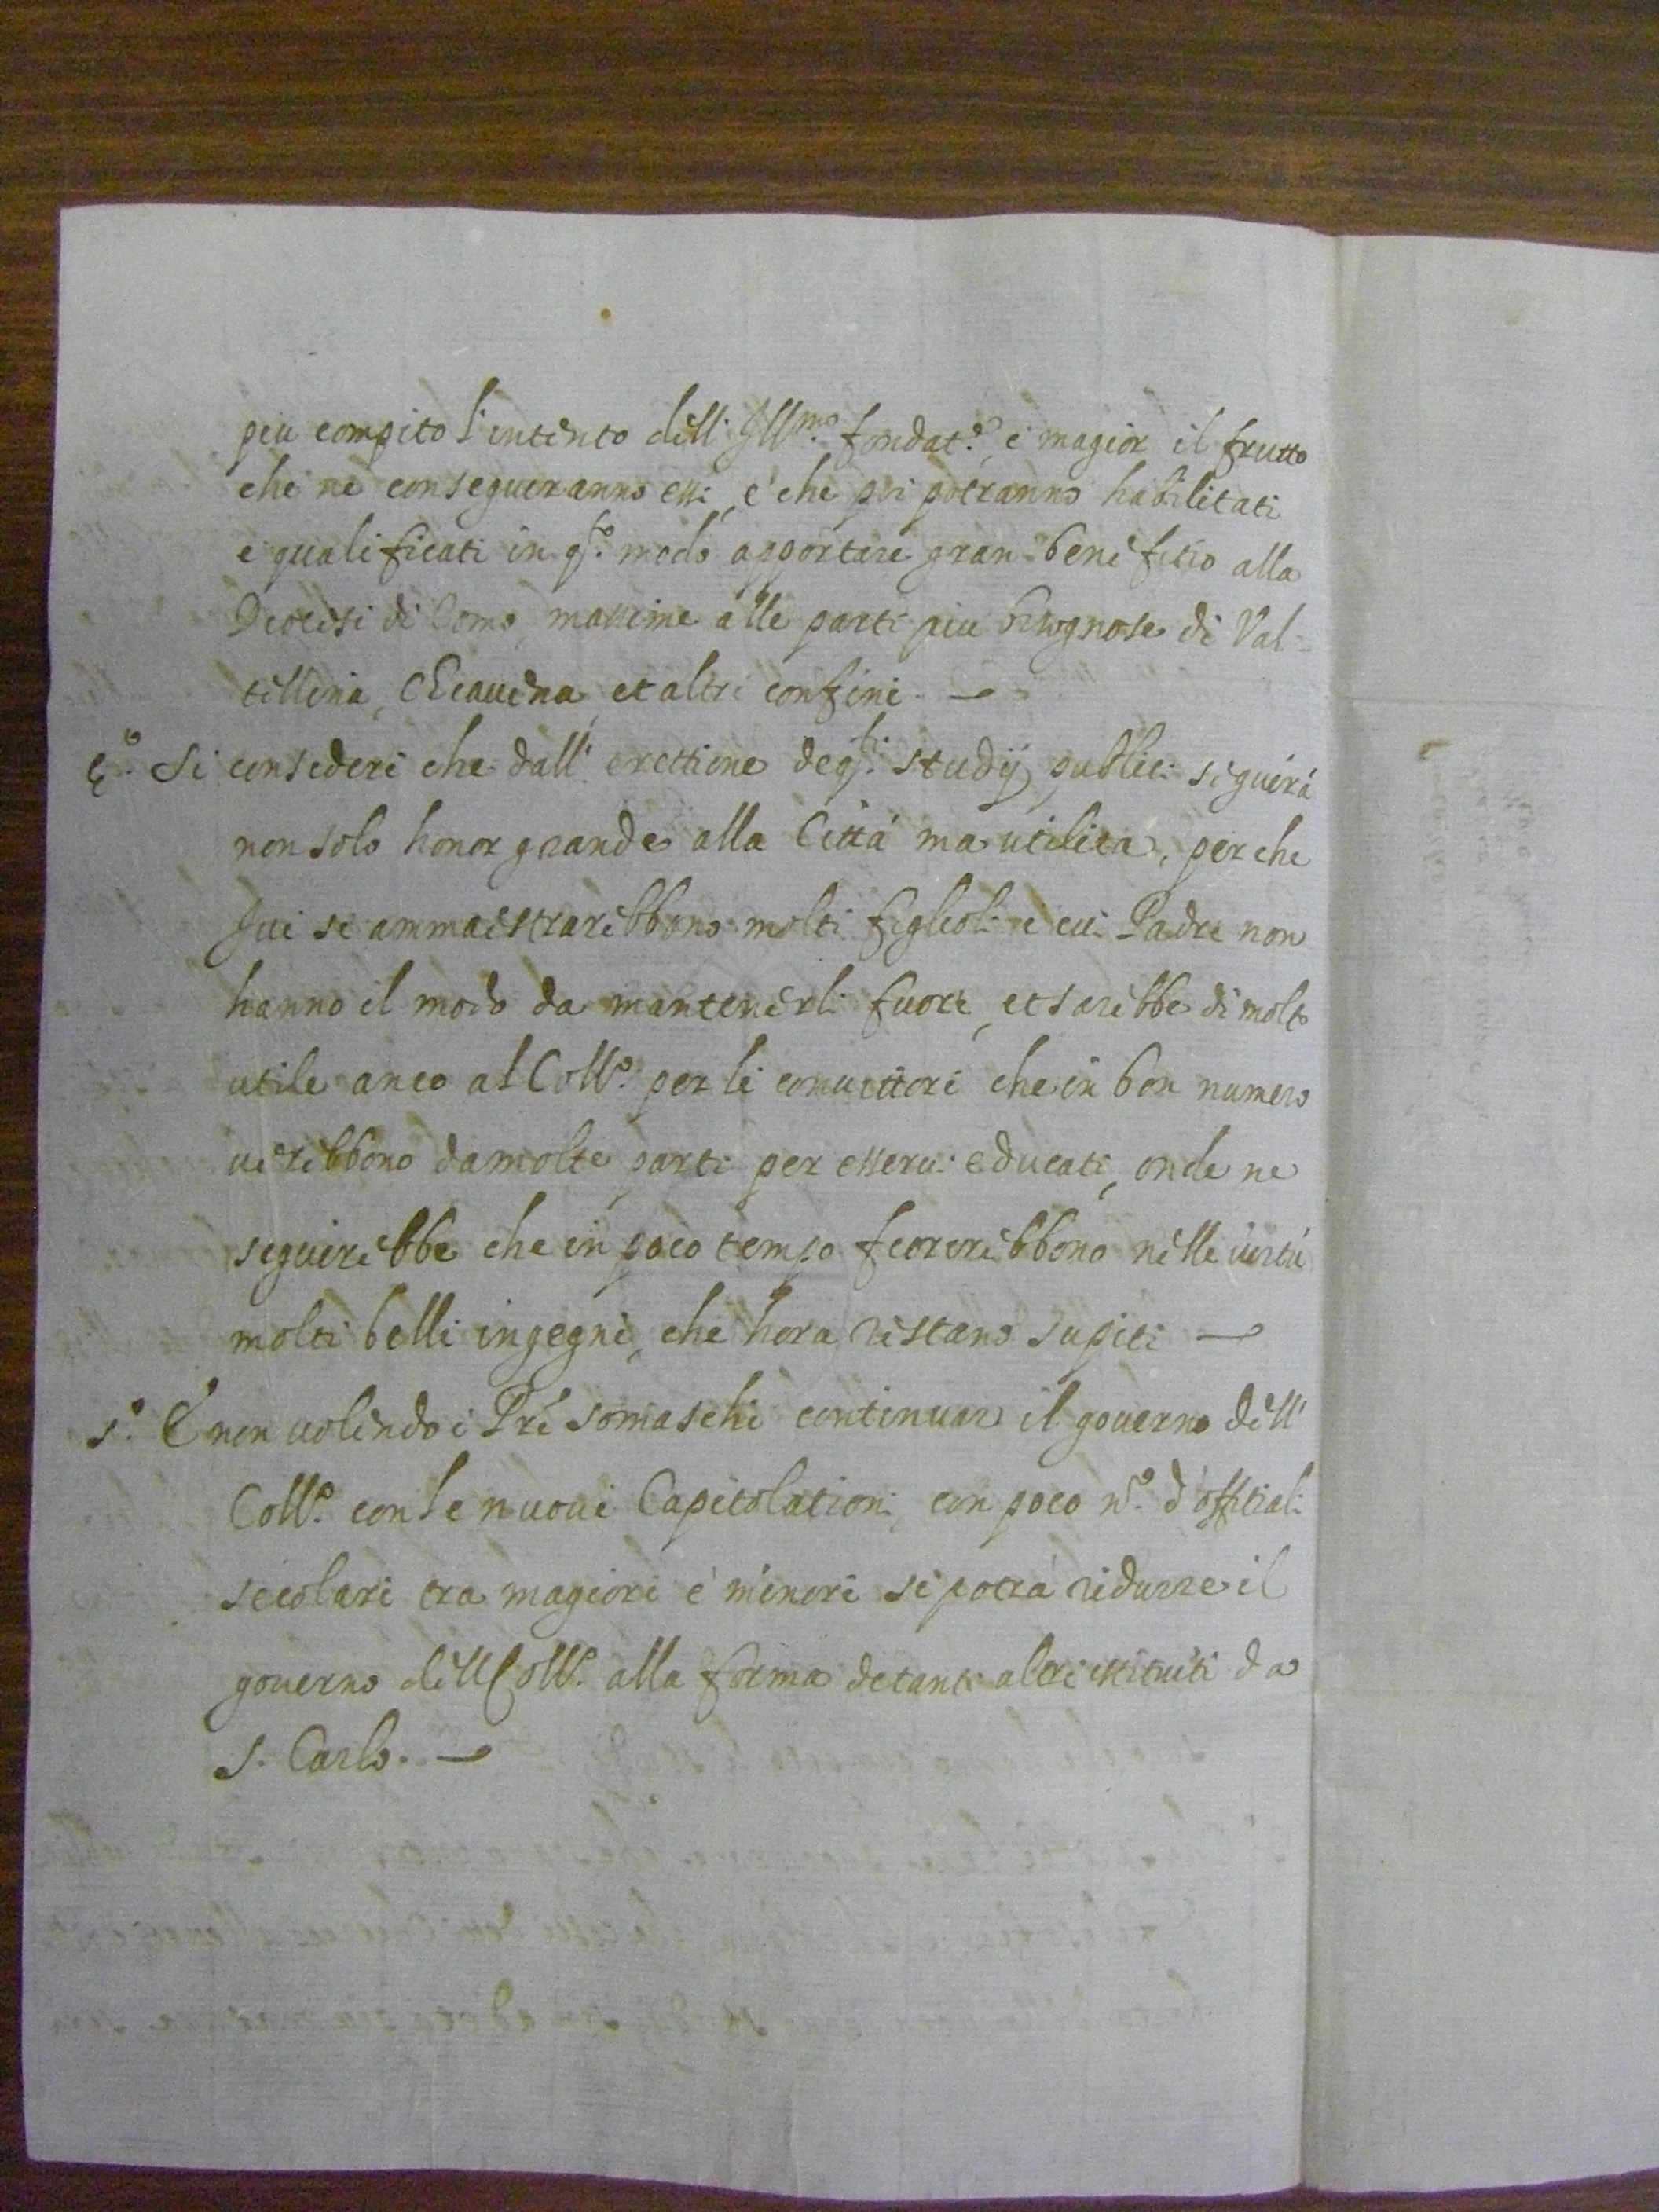 piu compito l'intento dell' Ill.mo fondat.e, e magior il frutto
che ne conseguiranno essi, e che poi potranno habilitati
e qualificati in q.to modo apportare gran benefitio alla
Diocesi di Como, massime alle parti piu bisognose di Val-
tellina, Chiavena, et altri confini. —
4.o Si consideri che dall' erettione de q.ti studij publici seguirà
non solo honor grande alla Città ma utilità, perche
qui se ammaestrarebbono molti figlioli i cui Padri non
hanno il modo da mantenerli fuori, et sarebbe di molto
utile anco al Coll.o per li convittori che in bon numero
verebbono da molte parti per esservi educati, onde ne
seguirebbe che in poco tempo fiorirebbono nelle virtù
molti belli ingegni, che hora restano sopiti —
5.o E non volendo i Pri Somaschi continuar il governo dell'
Coll.o con le nuove Capitolationi, con poco n.o d'offitiali
secolari tra magiori e minori si potrà ridurre il
governo dell Coll.o alla forma de tanti altri istituiti da
S. Carlo. —